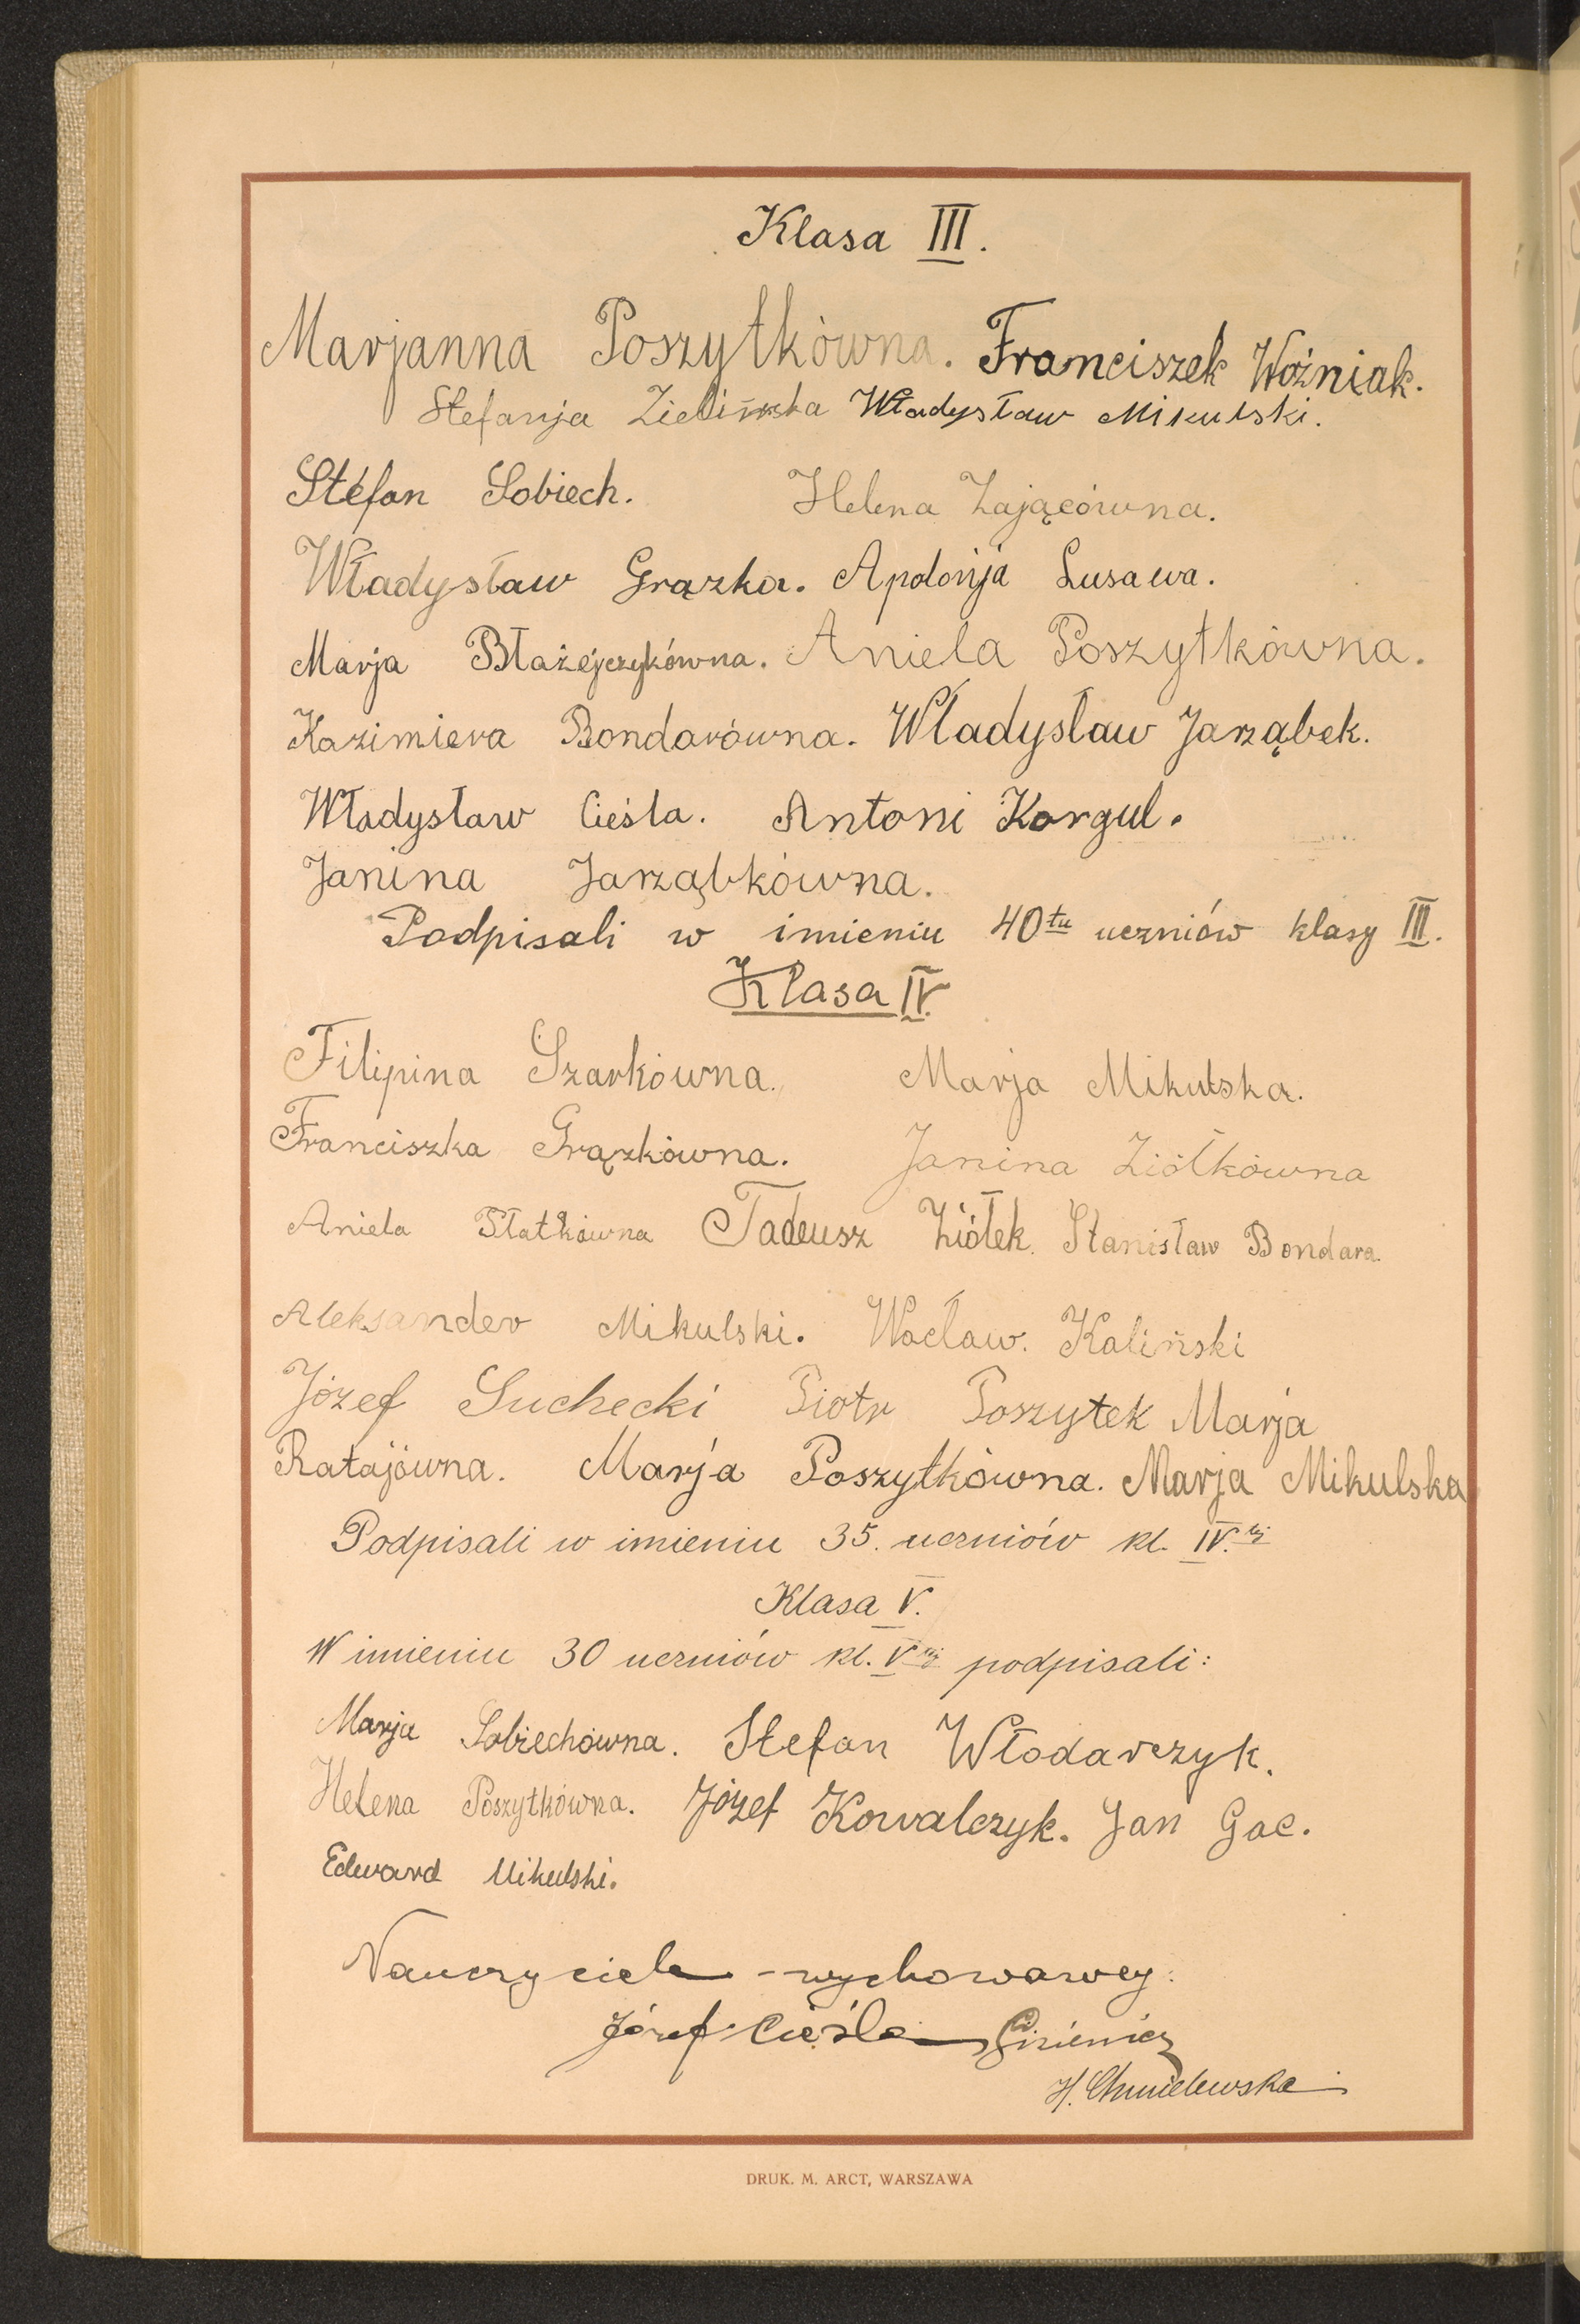 Klasa III.
Marjanna Poszytkówna. Franciszek Woźniak.
Stefanja Zielińska Władysław Mikulski.
Stefan Sobiech. Helena Zającówna.
Władysław Grązka. Apolonja Lusawa.
Marja Błażejczykówna. Aniela Poszytkówna.
Kazimiera Bondarówna. Władysław Jarząbek.
Władysław Cieśla. Antoni Korgul.
Janina Jarząbkówna.
Podpisali w imieniu 40tu uczniów klasy III.
Klasa IV.
Filipina Szarkówna. Marja Mikulska.
Franciszka Grązkówna. Janina Ziółkówna
Aniela Płatkówna Tadeusz Ziółek. Stanisław Bondara.
Aleksander Mikulski. Wacław. Kaliński
Józef Suchecki Piotr Poszytek Marja
Ratajówna. Marja Poszytkówna. Marja Mikulska
Podpisali w imieniu 35. uczniów kl. IV.tej
Klasa V.
W imieniu 30 uczniów kl. Vtej podpisali:
Marja Sobiechówna. Stefan Włodarczyk.
Helena Poszytkówna. Józef Kowalczyk. Jan Gac.
Edward Mikulski.
Nauczyciele - wychowawcy:
Józef Cieśla
H. Chmielewska
DRUK. M. ARCT, WARSZAWA